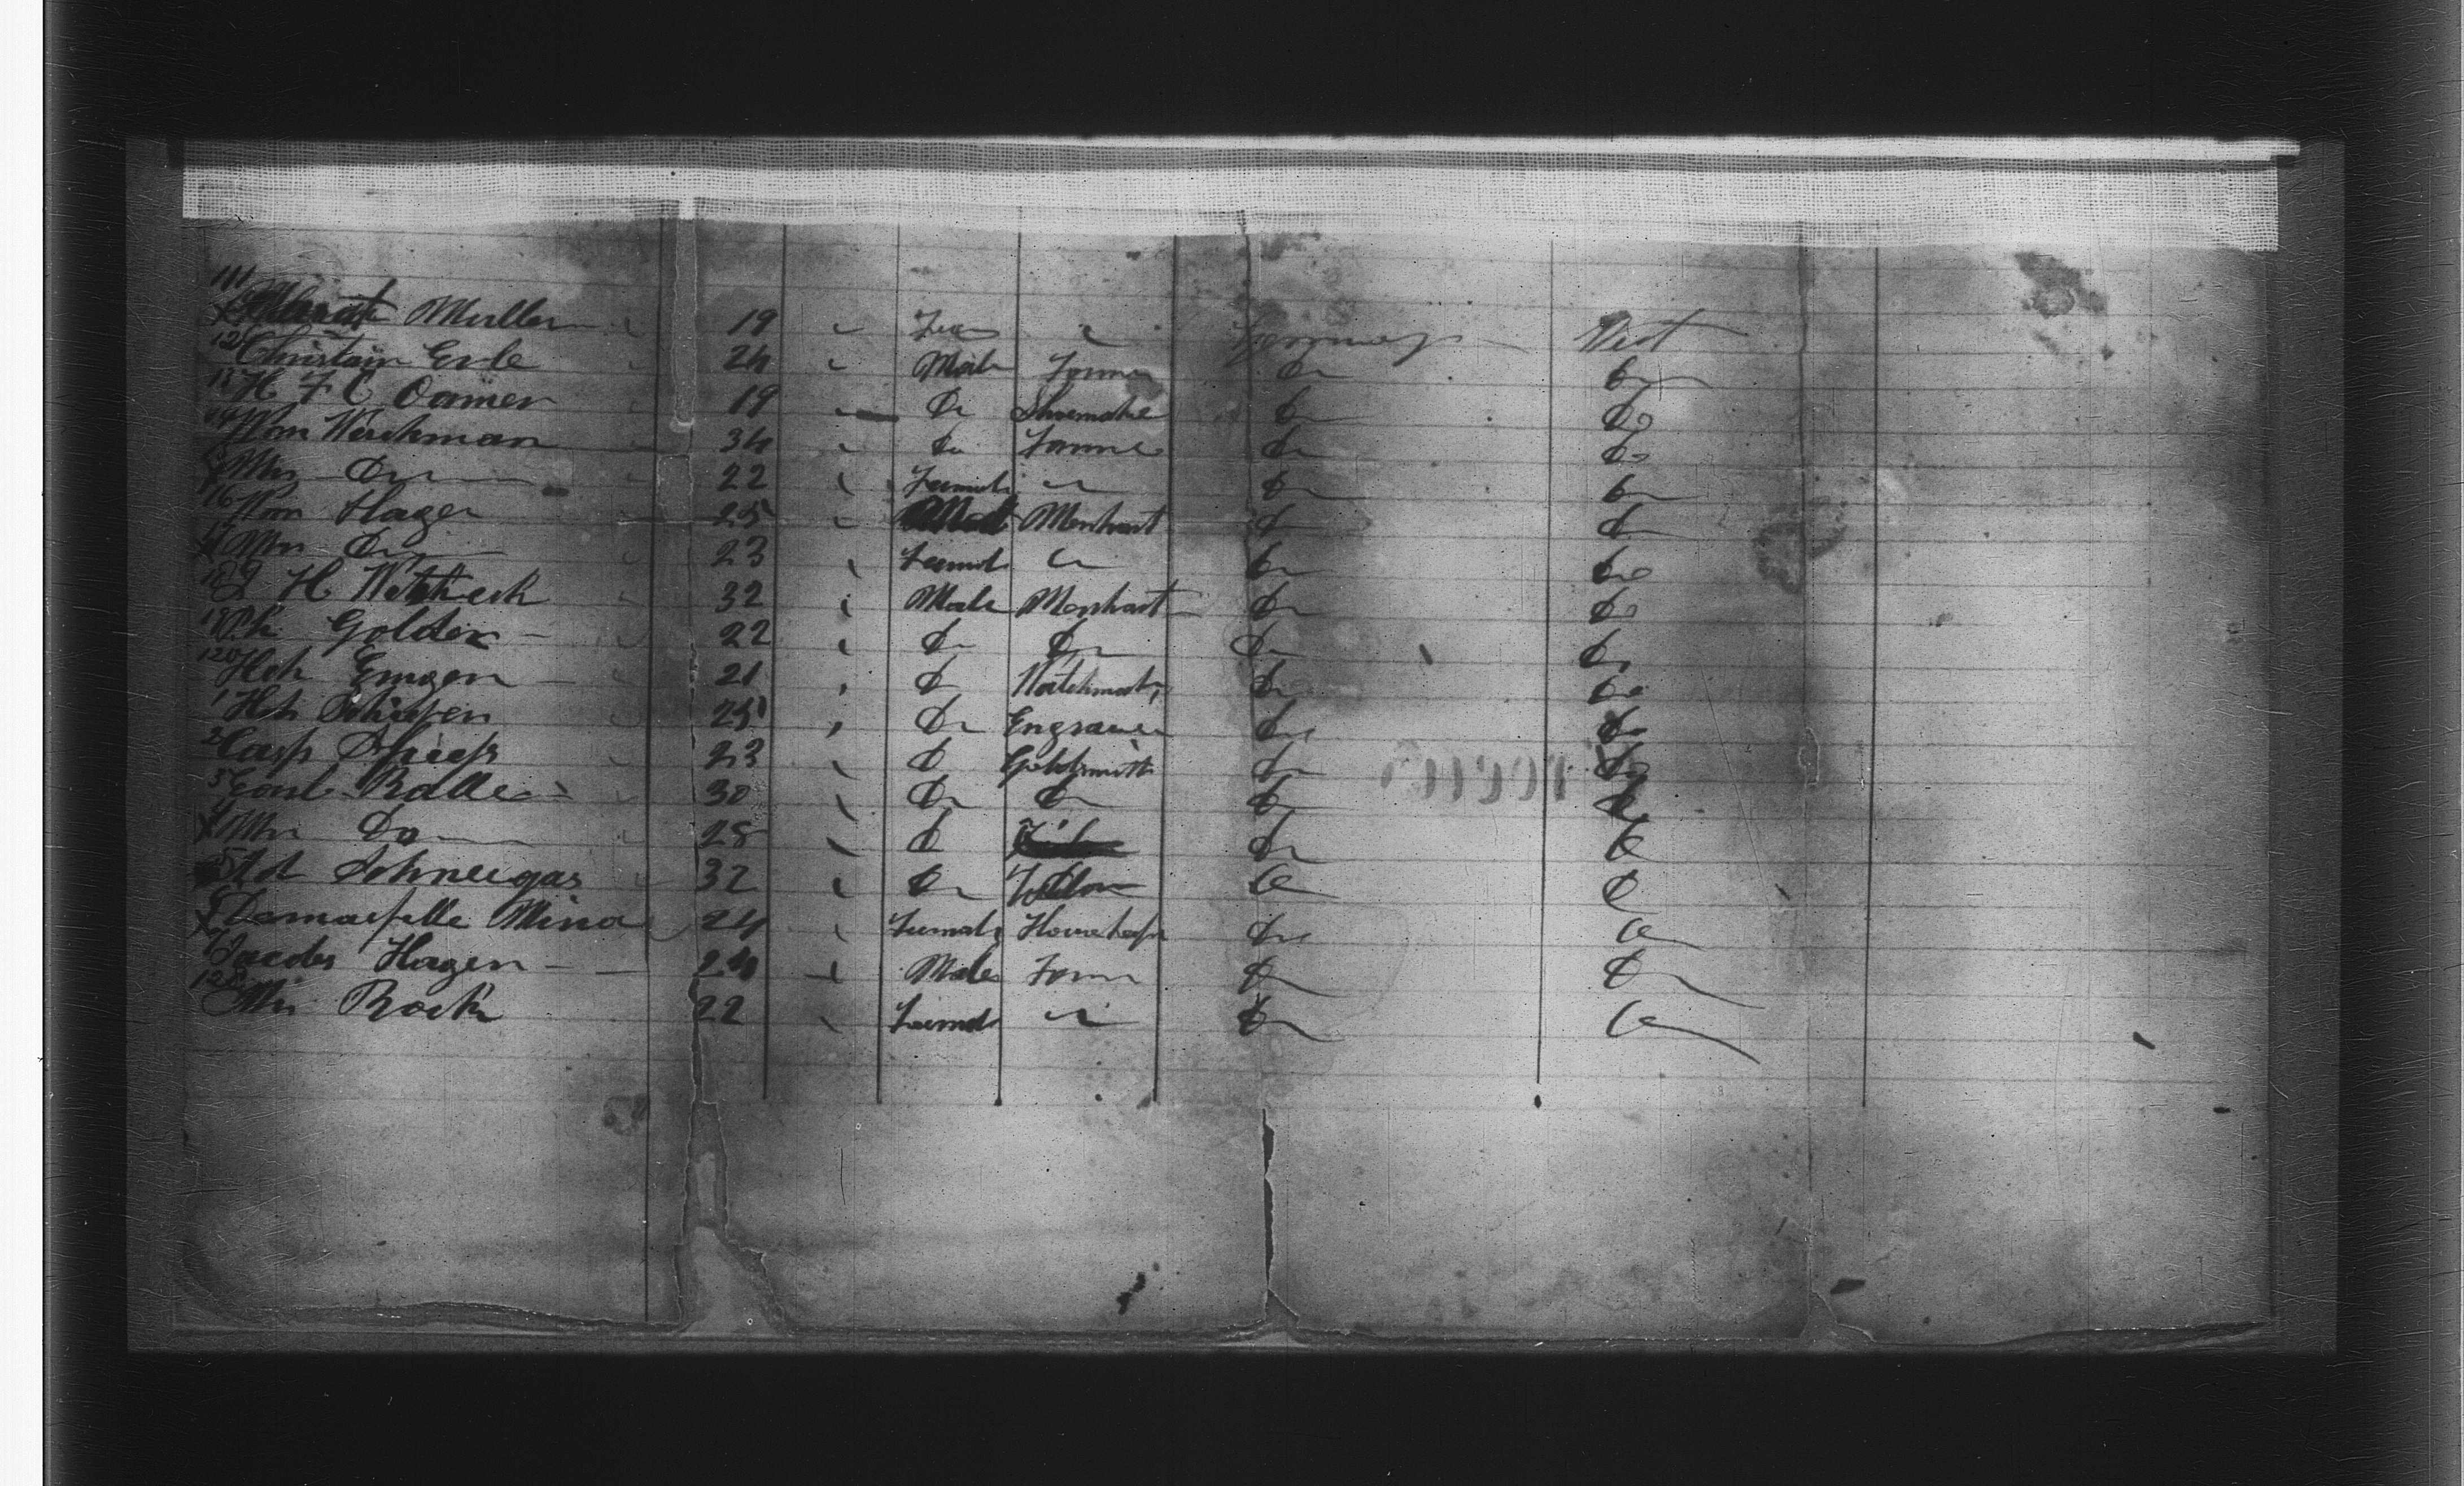 111
Muller 19 Fem Germany West
12 Christain Erbe 24 Male Farmer Do Do
13 H F C Oamen 19 Do Shoemake Do Do
14 Wm Werckman 34 Do Farmer Do Do
5 Mrs Do 22 Female Do Do
16 Wm Hagen 25 Male Merchant Do Do
17 Mrs Do 23 Female Do Do
18 H 32 Male Merchant Do Do
19 Ph. Golder 22 Do Do Do Do
120 Hch Emgen 21 Do Watchmak Do Do
1 Hch 25 Do Engraver Do Do
2 Casp 23 Do Goldsmith Do Do
3 Balle 30 Do Do Do Do
4 Mrs Do 28 Do Do Do
5 Ad Schneegas 32 Do Do Do
6 Damaeselle Mina 24 Female Housekeep Do Do
7 Jacobs Hagen 24 Male Farm Do Do
128 Mrs Bock 22 Female Do Do